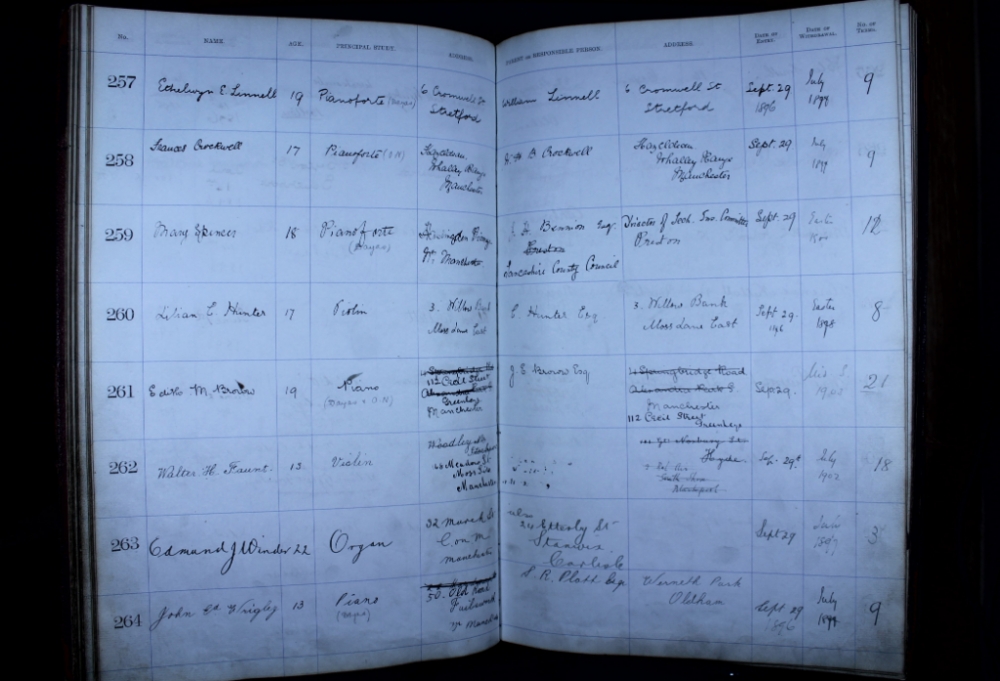 No. NAME. AGE. PRINCIPAL STUDY. ADDRESS. PARENT OR RESPONSIBLE PERSON. ADDRESS. DATE OF ENTRY. DATE OF WITHDRAWAL. No. OF TERMS.
257 Ethelwyn E Linnell 19 Pianoforte (Dayas) 6 Cromwell St William Linnell 6 Cromwell St Sept 29 July 9
Stretford Stretford 1896 1899
258 Frances Crockwell 17 Pianoforte (O.N) Crockwell Sept. 29 July 9
Whalley Range Whalley Range 1899
Manchester Manchester
259 Mary Spencer 18 Pianoforte Bennion Esq. Director of Tech. Ins. Committee Sept. 29 12
(Dayas) Manchester Preston Preston
Lancashire County Council
260 Lilian E Hunter 17 Violin 3. Willow Bank E. Hunter Esq 3. Willow Bank Sept 29 Easter 8
Moss Lane East Moss Lane East 1896 1898
261 Edith M. Brown 19 Piano J E Brown Esq Springbridge Road Sep 29. 21
(Dayas & O.N) 112 Cecil Street Alexandra Park
Greenheys Manchester
Manchester 112 Cecil Street
Greenheys
262 Walter H. Faunt. 13 Violin Hyde Sep. 29th July 18
Meadow St
Moss Side
Manchester
263 Edmund J Winder 22 Organ 32 St Etterby St Sept 29 Jan 3
C on M Stanwix 1897
Manchester Carlisle
264 John Ed Wrigley 13 Piano 50. Old Road S. R. Platt Esq Werneth Park Sept 29 July 9
(Dayas) Failsworth Oldham 1896 1899